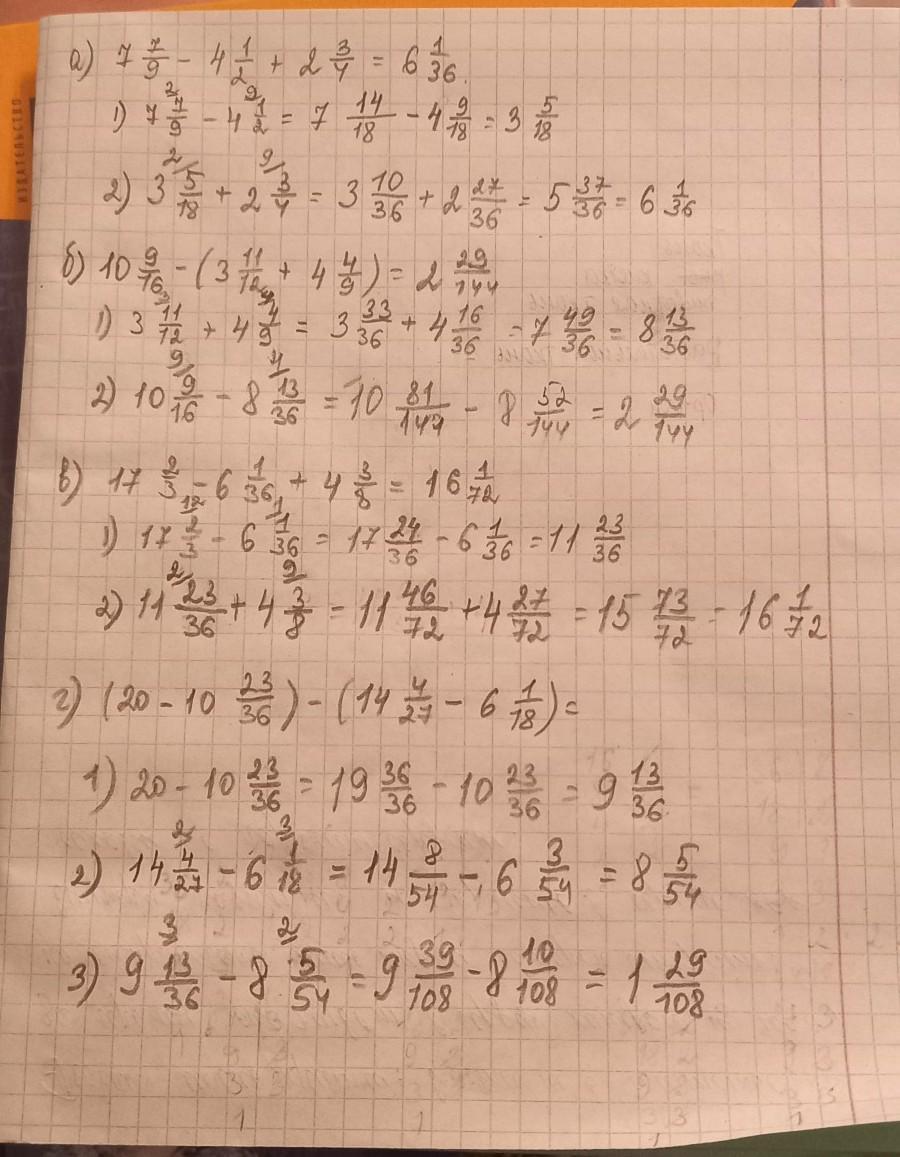 ИЗДАТЕЛЬСТВО
а) 7 7/9 - 4 1/2 + 2 3/4 = 6 1/36.
1) 7 7/9 - 4 1/2 = 7 14/18 - 4 9/18 = 3 5/18
2) 3 5/18 + 2 3/4 = 3 10/36 + 2 27/36 = 5 37/36 = 6 1/36
б) 10 9/16 - (3 11/12 + 4 4/9) = 2 29/144
1) 3 11/12 + 4 4/9 = 3 33/36 + 4 16/36 = 7 49/36 = 8 13/36
2) 10 9/16 - 8 13/36 = 10 81/144 - 8 52/144 = 2 29/144
в) 17 2/3 - 6 1/36 + 4 3/8 = 16 1/72
1) 17 2/3 - 6 1/36 = 17 24/36 - 6 1/36 = 11 23/36
2) 11 23/36 + 4 3/8 = 11 46/72 + 4 27/72 = 15 73/72 = 16 1/72
г) (20 - 10 23/36) - (14 4/27 - 6 1/18) =
1) 20 - 10 23/36 = 19 36/36 - 10 23/36 = 9 13/36
2) 14 4/27 - 6 1/18 = 14 8/54 - 6 3/54 = 8 5/54
3) 9 13/36 - 8 5/54 = 9 39/108 - 8 10/108 = 1 29/108